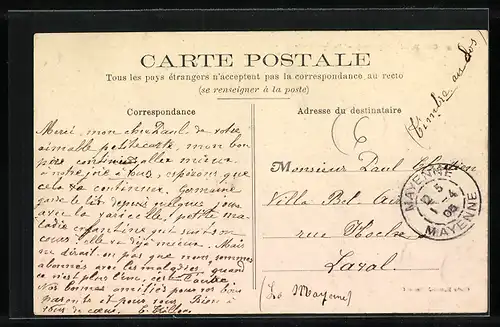 CARTE POSTALE
Tous les pays étrangers n'acceptent pas la correspondance au recto
(se renseigner à la poste)
Correspondance
Adresse du destinataire
(Timbre au dos)
6
Merci, mon cher Paul, de votre
aimable petite carte, mon bon
père continue à aller mieux
à notre joie à tous, espérons que
cela va continuer. Germaine
garde le lit depuis quelques jours
avec la varicelle, petite ma-
ladie enfantine qui suit son
cours, elle va bien mieux. Mais
ne dirait-on pas que nous sommes
abonnés avec les maladies, quand
ce n'est plus l'un, c'est l'autre.
Nos bonnes amitiés pour vos bons
parents et pour vous. Bien à
vous de cœur.
Monsieur Paul
Villa Bel
rue Hoche
Laval
(La Mayenne)
MAYENNE
5
-4
05
MAYENNE